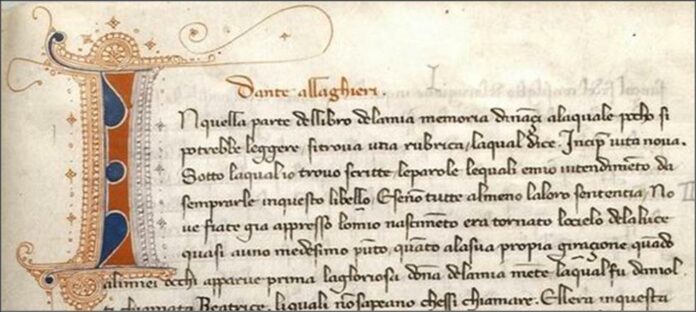 Dante allaghieri.
I
N quella parte dellibro delamia memoria dinançi alaquale pocho si
potrebbe leggere, sitrova una rubrica, laqual dice. Incip vita nova.
Sotto laqual io trovo scritte leparole lequali emio intendimēto da
semprarle inquesto libello, Esenō tutte almeno laloro sententia, No
ve fiate gia appresso lomio nascimēto era tornato locielo delaluce
quasi auno medesimo pūto, quāto alasua propia giraçione, quādo
alimiei occhi apparue prima lagloriosa dōna delamia mēte laqual fu damol
ti chiamata Beatrice, liquali nōsapeano chessi chiamare. Ellera inquesta